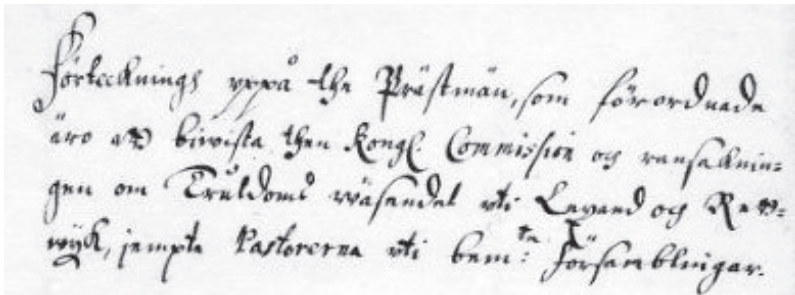 Förteckningh uppå the Prästmän, som förordnade
äro att biwista then Kongl. Commission og ransaknin=
gen om Truldoms wäsendet uti Lexand og Rätt=
wijk, jempte Pastorerna uti bem:te Församblingar.